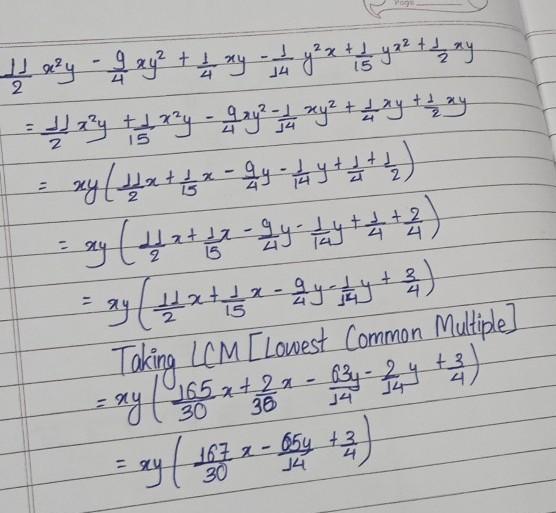 Page
11/2 x²y - 9/4 xy² + 1/4 xy - 1/14 y²x + 1/15 yx² + 1/2 xy
= 11/2 x²y + 1/15 x²y - 9/4 xy² - 1/14 xy² + 1/4 xy + 1/2 xy
= xy ( 11/2 x + 1/15 x - 9/4 y - 1/14 y + 1/4 + 1/2 )
= xy ( 11/2 x + 1/15 x - 9/4 y - 1/14 y + 1/4 + 2/4 )
= xy ( 11/2 x + 1/15 x - 9/4 y - 1/14 y + 3/4 )
Taking LCM [Lowest Common Multiple]
= xy ( 165/30 x + 2/30 x - 63y/14 - 2/14 y + 3/4 )
= xy ( 167/30 x - 65y/14 + 3/4 )